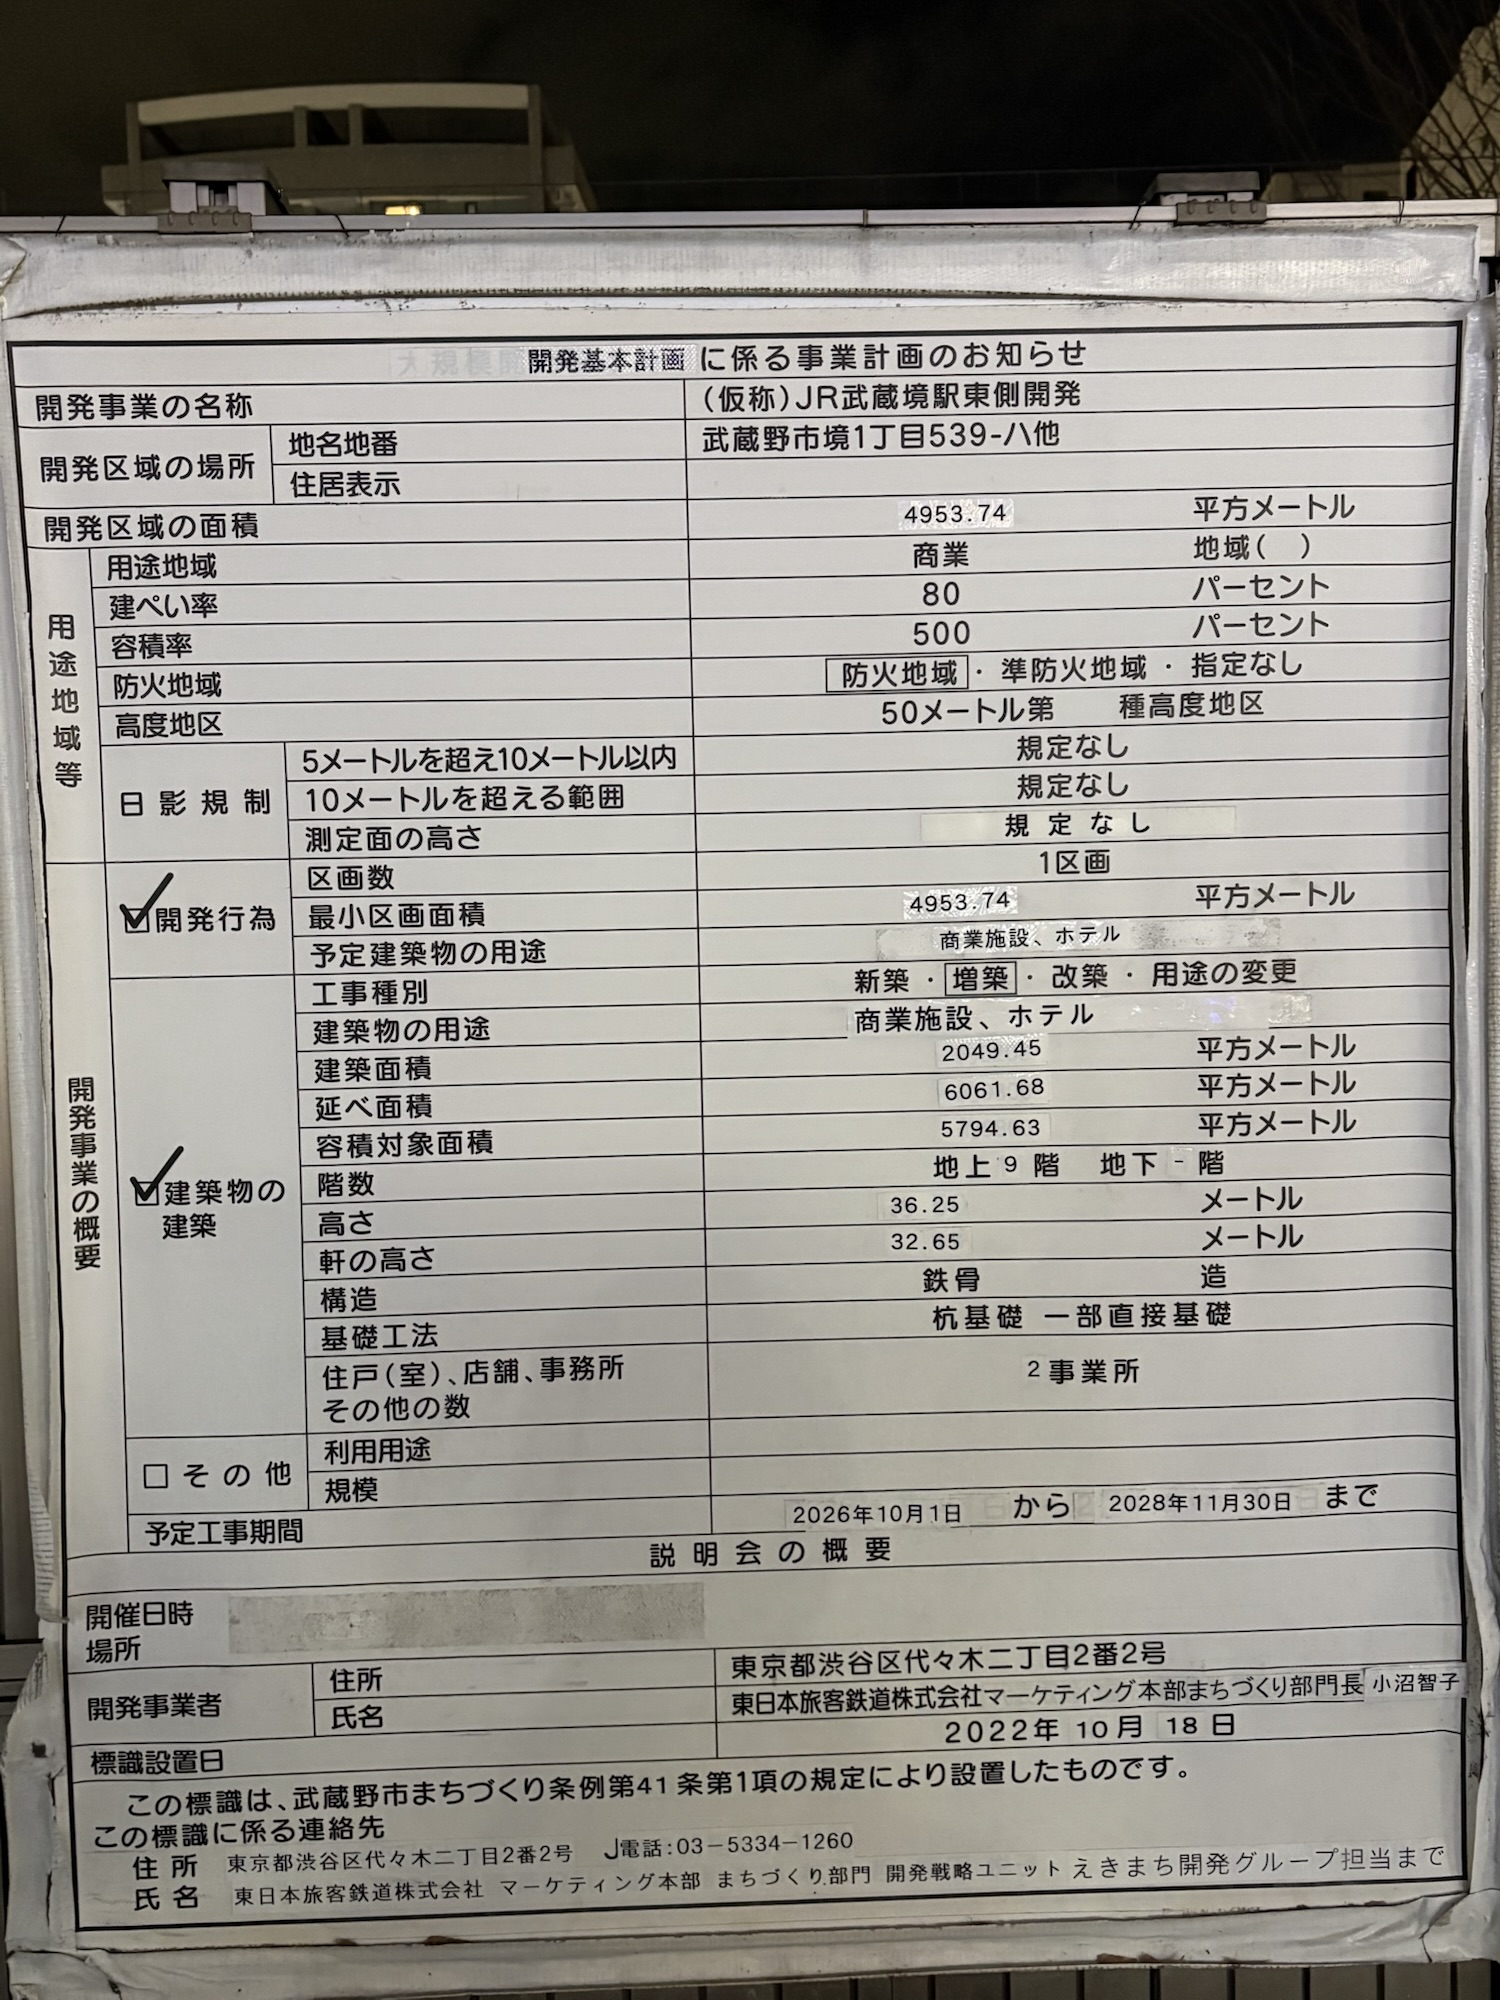 開発基本計画 に係る事業計画のお知らせ
開発事業の名称 (仮称)JR武蔵境駅東側開発
開発区域の場所 地名地番 武蔵野市境1丁目539-ハ他
住居表示
開発区域の面積 4953.74 平方メートル
用途地域等 用途地域 商業 地域( )
建ぺい率 80 パーセント
容積率 500 パーセント
防火地域 防火地域・準防火地域・指定なし
高度地区 50メートル第 種高度地区
日影規制 5メートルを超え10メートル以内 規定なし
10メートルを超える範囲 規定なし
測定面の高さ 規定なし
開発事業の概要 ☑開発行為 区画数 1区画
最小区画面積 4953.74 平方メートル
予定建築物の用途 商業施設、ホテル
☑建築物の建築 工事種別 新築・増築・改築・用途の変更
建築物の用途 商業施設、ホテル
建築面積 2049.45 平方メートル
延べ面積 6061.68 平方メートル
容積対象面積 5794.63 平方メートル
階数 地上 9 階 地下 - 階
高さ 36.25 メートル
軒の高さ 32.65 メートル
構造 鉄骨 造
基礎工法 杭基礎 一部直接基礎
住戸(室)、店舗、事務所
その他の数 2事業所
□その他 利用用途
規模
予定工事期間 2026年10月1日 から 2028年11月30日 まで
説明会の概要
開催日時
場所
開発事業者 住所 東京都渋谷区代々木二丁目2番2号
氏名 東日本旅客鉄道株式会社マーケティング本部まちづくり部門長 小沼智子
標識設置日 2022年 10月 18日
この標識は、武蔵野市まちづくり条例第41条第1項の規定により設置したものです。
この標識に係る連絡先
住所 東京都渋谷区代々木二丁目2番2号 電話:03-5334-1260
氏名 東日本旅客鉄道株式会社 マーケティング本部 まちづくり部門 開発戦略ユニット えきまち開発グループ担当まで